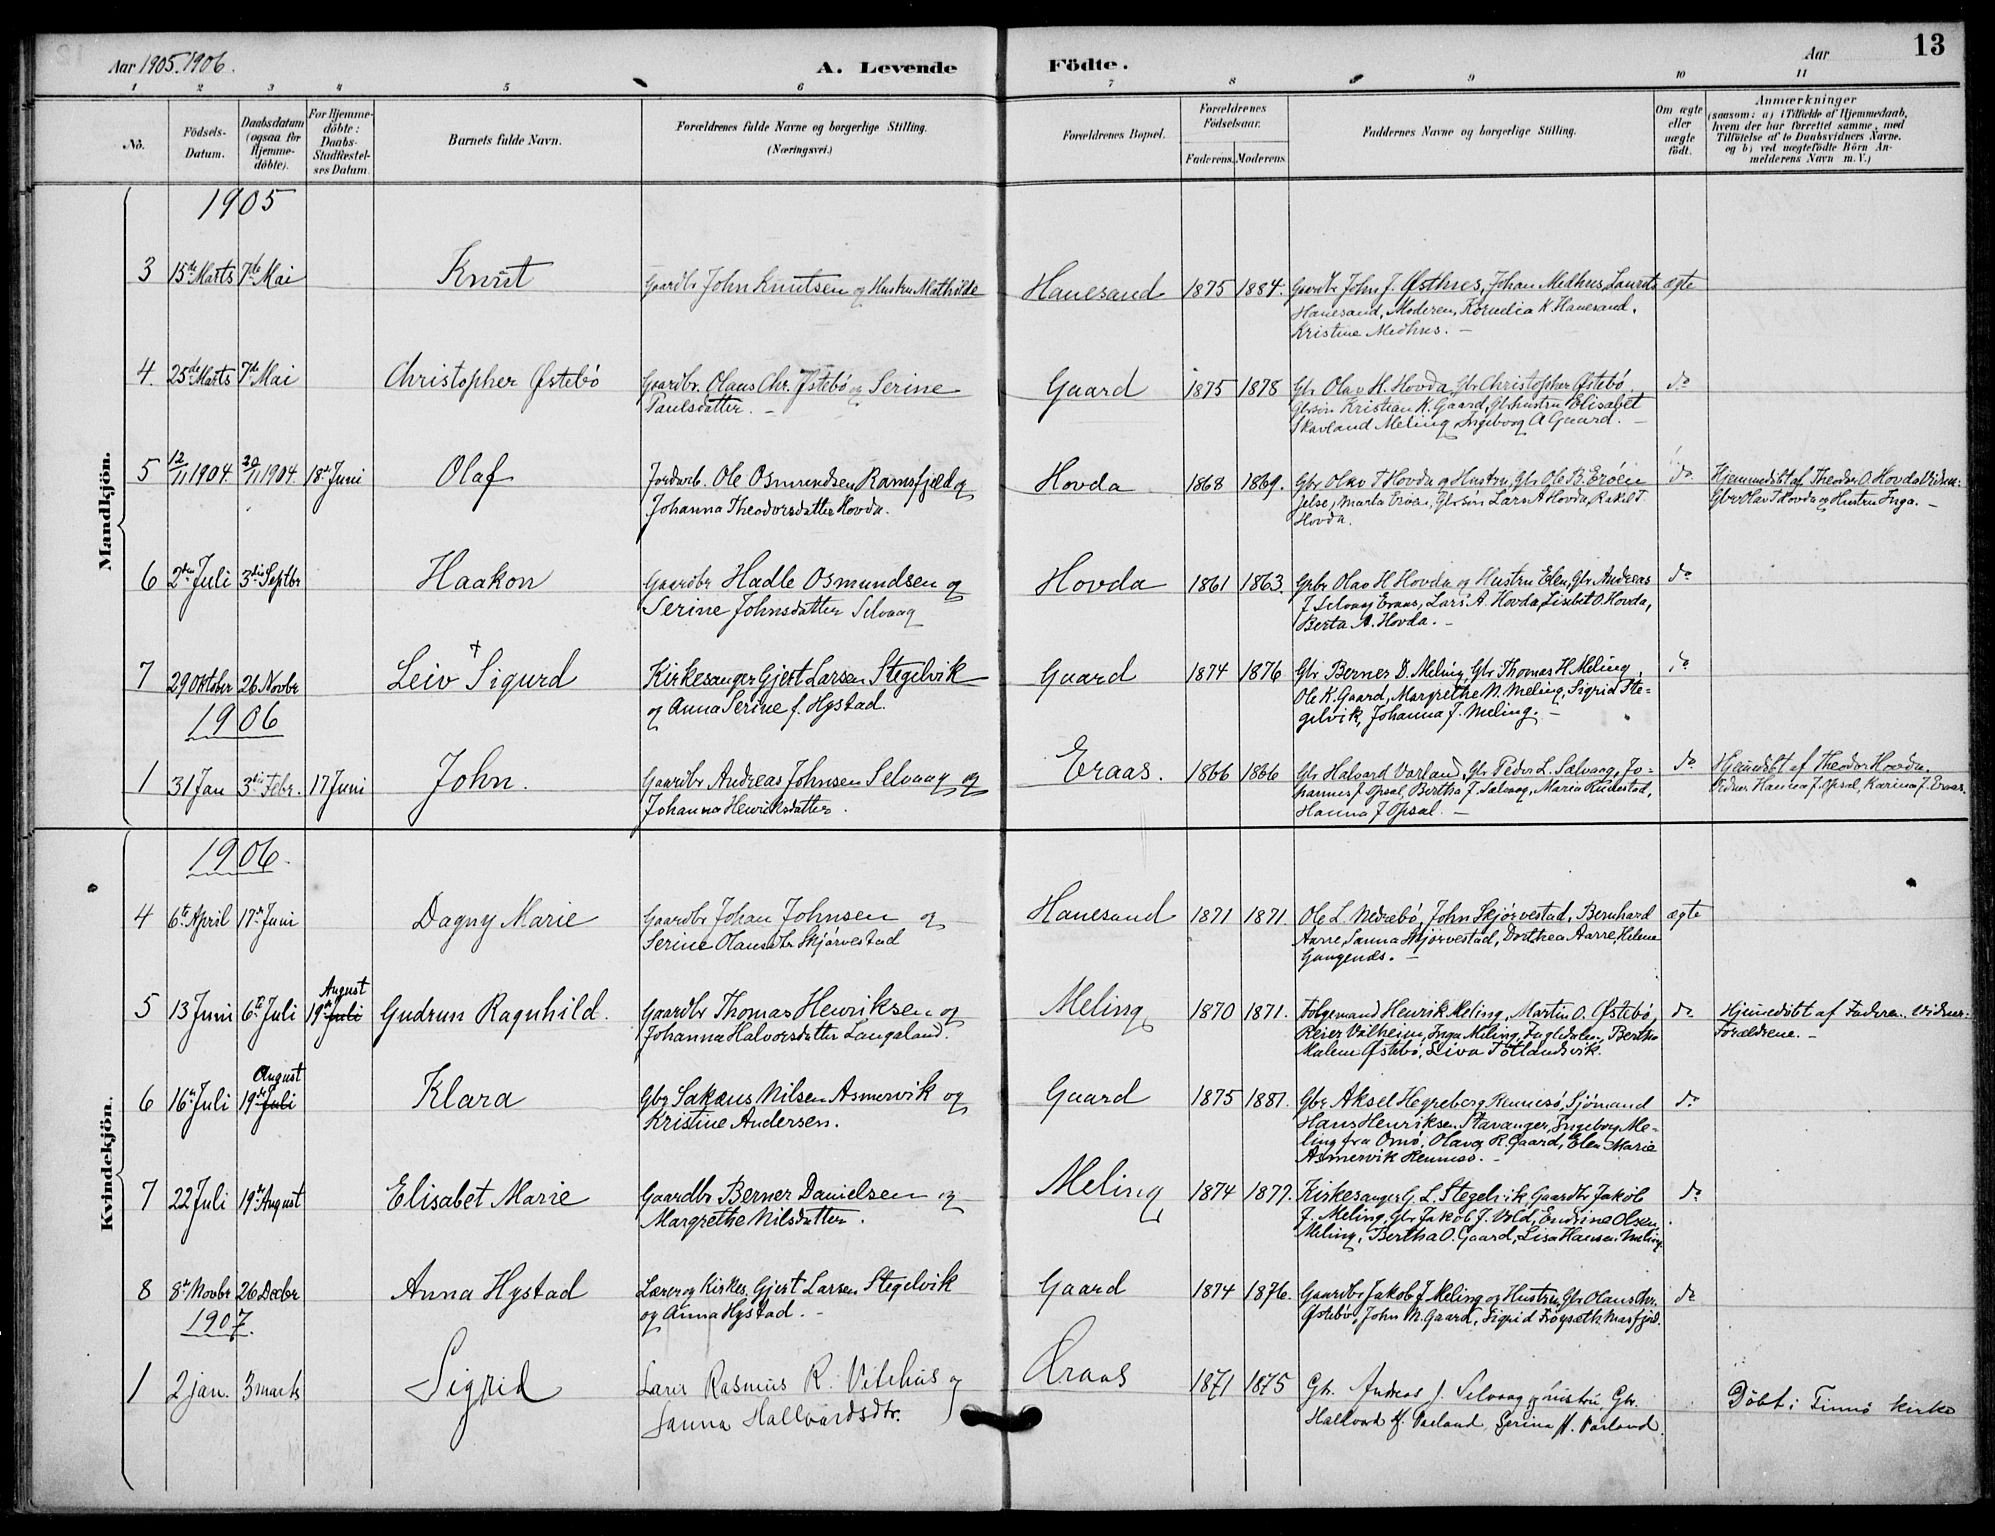 Aar 1905. 1906.
A. Levende Födte.
Aar
13
1 2 3 4 5 6 7 8 9 10 11
No.
Födsels-Datum.
Daabsdatum (ogsaa for Hjemme-döbte).
For Hjemme-döbte: Daabs-Stadfæstel-ses Datum.
Barnets fulde Navn.
Forældrenes fulde Navne og borgerlige Stilling.
(Næringsvei.)
Forældrenes Bopæl.
Forældrenes Födselsaar.
Faderens. Moderens.
Faddernes Navne og borgerlige Stilling.
Om ægte eller uægte födt.
Anmærkninger
(saasom: a) i Tilfælde af Hjemmedaab,
hvem der har forrettet samme, med
Tilföielse af to Daabsvidners Navne.
og b) ved uægtefödte Börn An-
melderens Navn m. V.)
Mandkjön.
1905
3 15de Marts 7de Mai Knut Gaardbr John Knutsen og Hustru Mathilde Hanesand 1875 1884. Gaardbr John J. Østhus, Johan Medhus, Laurits ægte
Hanesand, Moderen, Kornelia K. Hanesand,
Kristine Medhus. —
4. 25de Marts 7de Mai Christopher Østebö Gaardbr. Olaus Chr. Østebö og Serine Gaard 1875 1878 Gbr Olav H. Hovda, Gbr Christopher Østebö do
Paulsdatter. — Gbrsön Kristian K. Gaard, Gbrhustru Elisabet
Skarland Meling Ingeborg A Gaard. —
5 12/11 1904. 20/11 1904. 18de Juni Olaf Jordarb. Ole Osmundsen Ramsfjeld og Hovda 1868 1869. Gbr Olav T Hovda og Hustru, Gbr Ole B. Eröen do Hjemmedöbt af Theodor O. Hovda Vidner:
Johanna Theodorsdatter Hovda. Jelse, Marta Eröen, Gbrsön Lars A Hovda, Rakel T. Gbr Olav T Hovda og Hustru Inga. —
Hovda.
6 2den Juli 3die Septbr Haakon Gaardbr Hadle Osmundsen og Hovda 1861 1863. Grbr Olav H Hovda og Hustru Elen, Gbr Andreas do
Serine Johnsdatter Selvaag J Selvaag Eraas, Lars A. Hovda, Lisebet O. Hovda,
Berta A. Hovda. —
7 29 Oktober 26 Novbr Leiv † Sigurd Kirkesanger Gjert Larsen Stegelvik Gaard 1874 1876 Gbr Berner D. Meling, Gbr Thomas H. Meling, do
og Anna Serine f. Hystad. Ole K. Gaard, Margrethe N. Meling, Sigrid Ste-
gelvik, Johanna J. Meling. —
1906
1 31 Jan 3die Febr. 17 Juni John. Gaardbr Andreas Johnsen Selvaag og Eraas. 1866 1866 Gbr Halvard Varland, Gbr Peder L. Selvaag, Jo- do Hjemdöbt af Theodor Hovda.
Johanna Henriksdatter. hannes J. Opsal, Bertha J. Selvaag, Maria Rudestad, Vidner Hanna J. Opsal, Karina J. Eraas.
Hanna J Opsal. —
Kvindekjön.
1906.
4 6te April 17de Juni Dagny Marie Gaardbr Johan Johnsen og Hanesand 1871 1871. Ole L. Nedrebö, John Skjörvestad, Bernhard ægte
Serine Olausdtr Skjörvestad Aarre, Sanna Skjörvestad, Dorthea Aarre, Helene
Gangenæs. —
5 13 Juni 6te Juli 19de Juli August Gudrun Ragnhild. Gaardbr Thomas Henriksen og Meling 1870 1871. Folgemand Henrik Meling, Martin O. Østebö, do Hjemedöbt af Faderen. Vidner:
Johanna Halvorsdatter Langeland. Reier Valheim, Inga Meling, Fugledalen, Bertha Forældrene. —
Malene Østebö, Liva Totlandsvik.
6 16de Juli 19de Juli August Klara Gbr Sakæus Nilsen Asmervik og Gaard 1875 1881. Gbr Aksel Hegreberg Rennesö, Sjömand do
Kristine Andersen. Hans Henriksen Stavanger, Ingeborg Me-
ling fra Omö, Olava R. Gaard, Elen Marie
Asmervik Rennesö. —
7 22 Juli 19de August Elisabet Marie Gaardbr Berner Danielsen og Meling 1874 1877. Kirkesanger G. L. Stegelvik, Gaardbr Jakob do
Margrethe Nilsdatter. J. Meling, Gbr Jakob J. Vold, Endrine Olsen
Meling, Bertha O. Gaard, Lisa Hansen Meling.
8 8de Novbr 26 Decbr Anna Hystad Lærer og Kirkes. Gjert Larsen Stegelvik Gaard 1874 1876. Gaardbr Jakob J Meling og Hustru, Gbr Olaus Chr. do
og Anna Hystad. — Østebö, John N. Gaard, Sigrid Fröysæth Masfjord.
1907.
1 2 jan. 3 marts Sigrid Lærer Rasmus R. Vitehus og Æraas 1871 1875 Gbr. Andreas J. Selvaag og hustru, Gbr. Döbt i Finnö kirke
Sanna Hallvardsdtr. Hallvard H. Varland, Serina H. Varland.